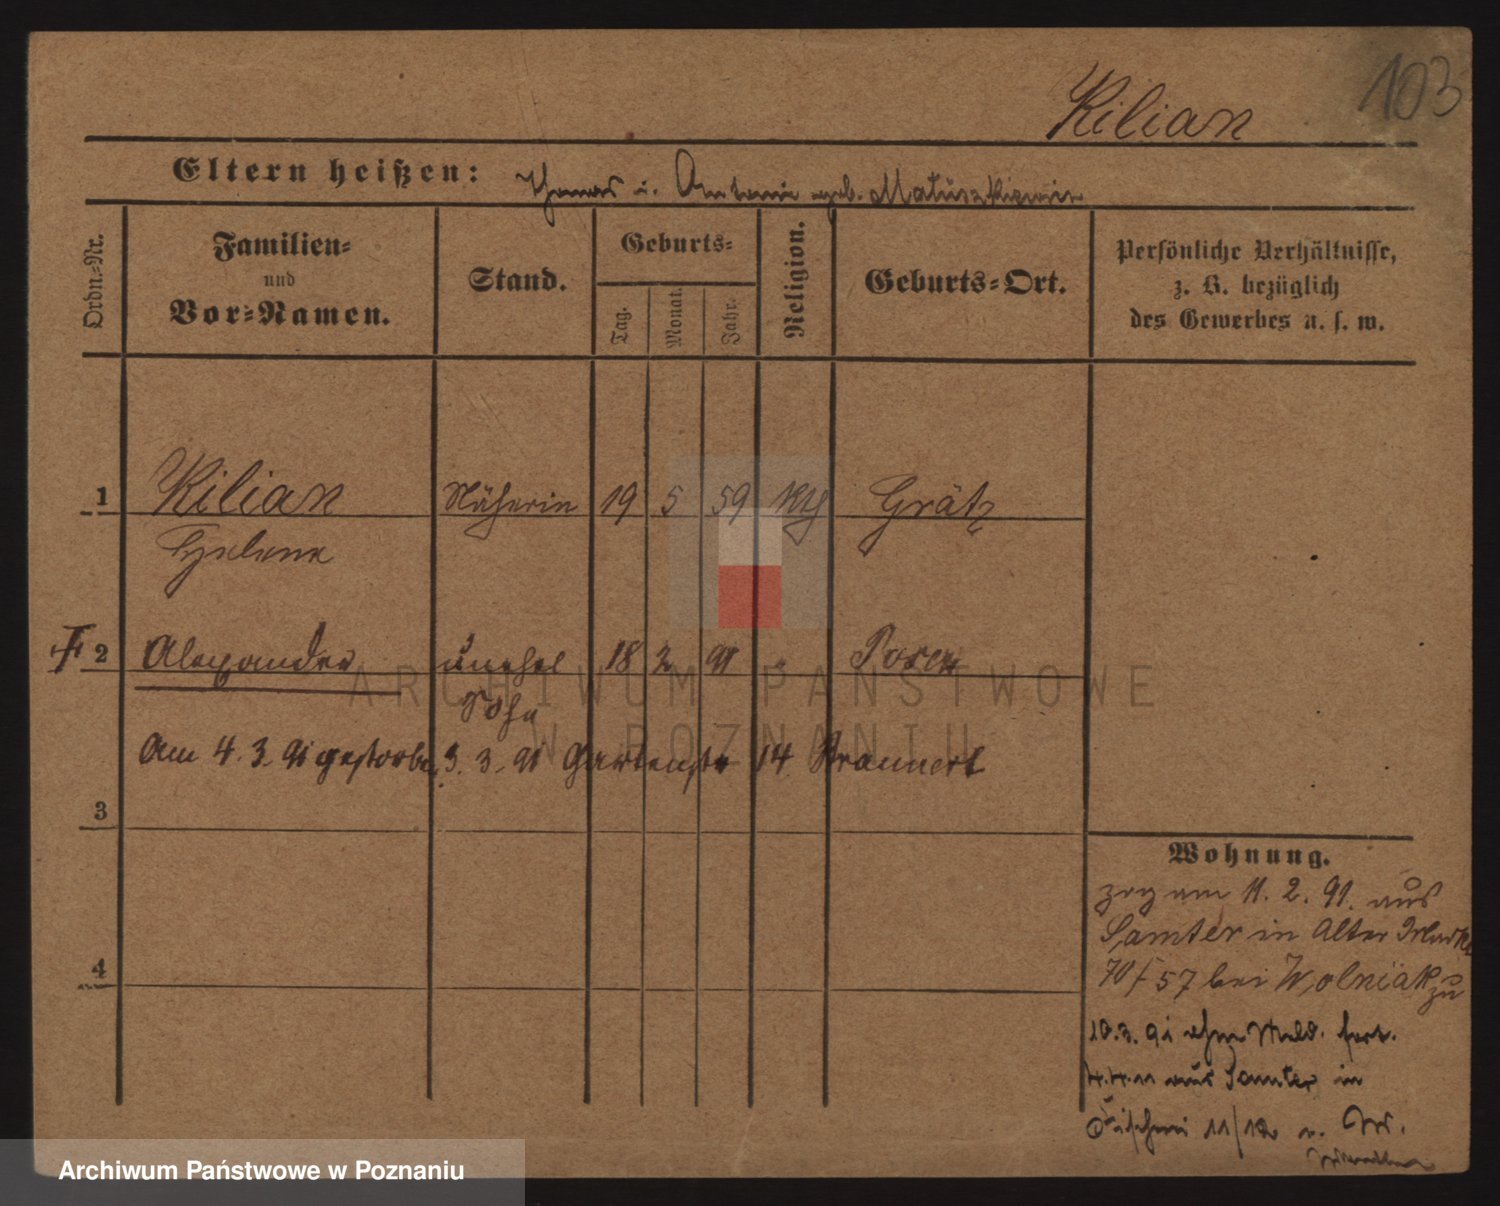 103
Kilian
Eltern heißen: Thomas u. Antonie geb. Matuszkiewicz
Ordn.-Nr.
Familien-
und
Vor-Namen.
Stand.
Geburts-
Tag.
Monat.
Jahr.
Religion.
Geburts-Ort.
Persönliche Verhältnisse,
z. B. bezüglich
des Gewerbes u. s. w.
1 Kilian Näherin 19 5 59 kth Grätz
Helene
2 Alexander unehel 18 2 91 " Posen
Sohn
Am 4. 3. 91 gestorben 3. 3. 91 Gartenstr 14
3
4
Wohnung.
zog am 11. 2. 91. aus
Samter in Alter Markt
70/57 bei Wolniak zu
10. 3. 91 ohne Meld. fort.
aus Samter in
11/12
ARCHIWUM PAŃSTWOWE
W POZNANIU
Archiwum Państwowe w Poznaniu